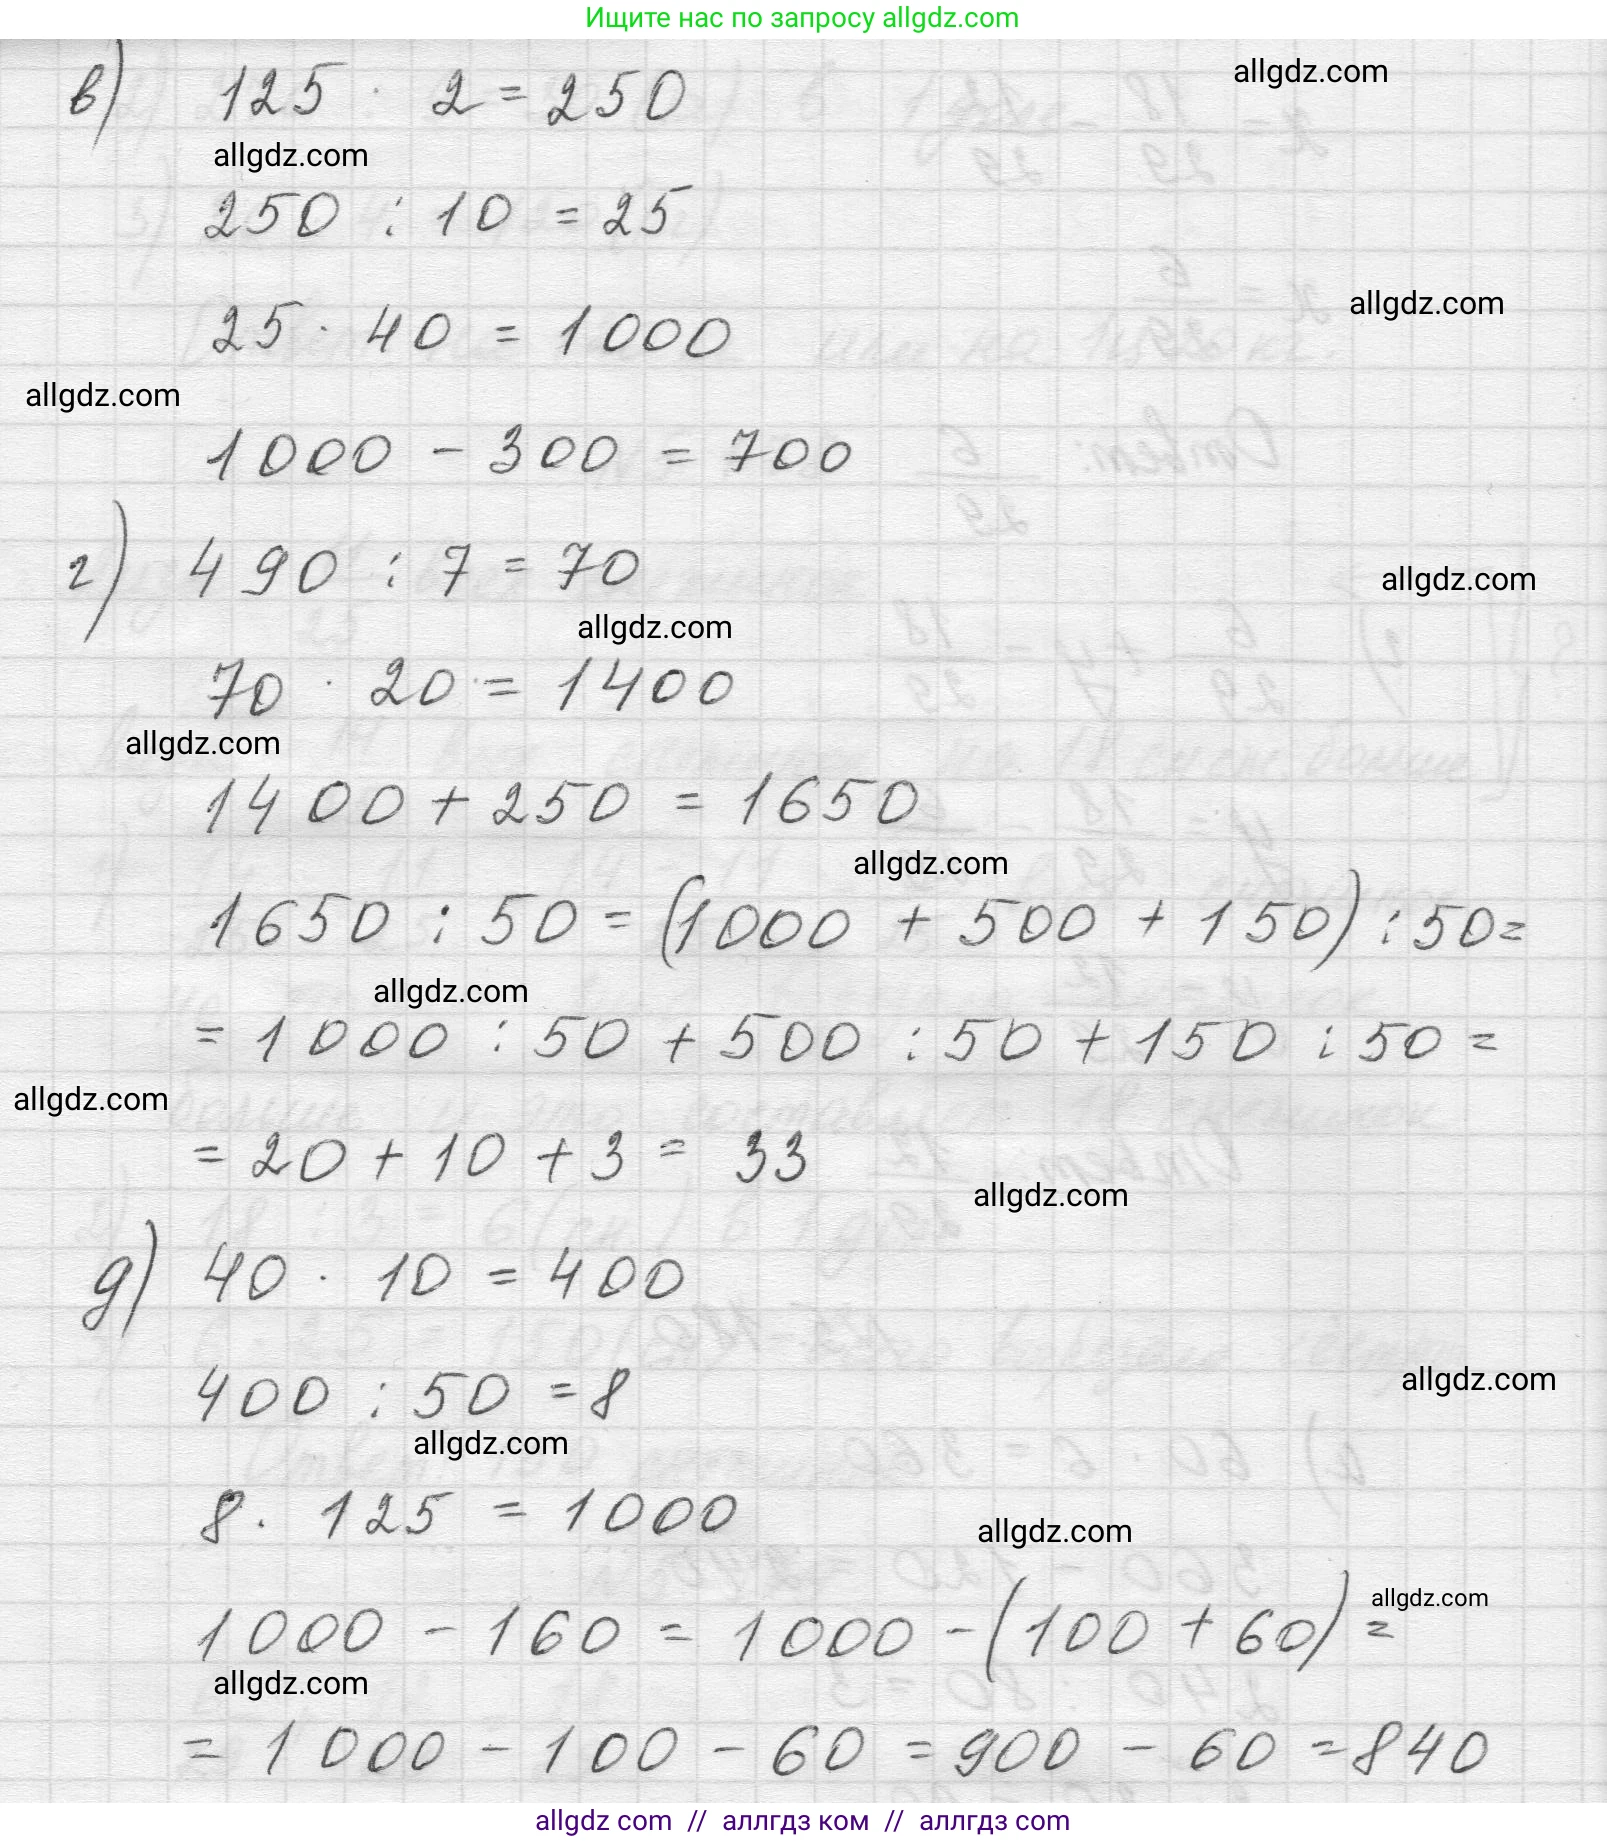 Ищите нас по запросу allgdz.com
в) 125 · 2 = 250
allgdz.com
allgdz.com
250 : 10 = 25
allgdz.com
25 · 40 = 1000
allgdz.com
1000 - 300 = 700
г) 490 : 7 = 70
allgdz.com
allgdz.com
70 · 20 = 1400
allgdz.com
1400 + 250 = 1650
allgdz.com
1650 : 50 = (1000 + 500 + 150) : 50 =
allgdz.com
= 1000 : 50 + 500 : 50 + 150 : 50 =
allgdz.com
= 20 + 10 + 3 = 33
allgdz.com
д) 40 · 10 = 400
400 : 50 = 8
allgdz.com
allgdz.com
8 · 125 = 1000
allgdz.com
allgdz.com
1000 - 160 = 1000 - (100 + 60) =
allgdz.com
= 1000 - 100 - 60 = 900 - 60 = 840
allgdz.com // аллгдз ком // аллгдз com